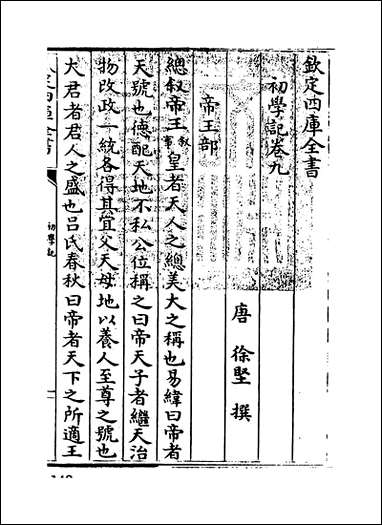 欽定四庫全書
初學記卷九
唐 徐堅 撰
帝王部
總叙帝王 叙事 皇者天人之總美大之稱也易緯曰帝者
天號也德配天地不私公位稱之曰帝天子者繼天治
物改政一統各得其宜父天母地以養人至尊之號也
大君者君人之盛也呂氏春秋曰帝者天下之所適王
初學記